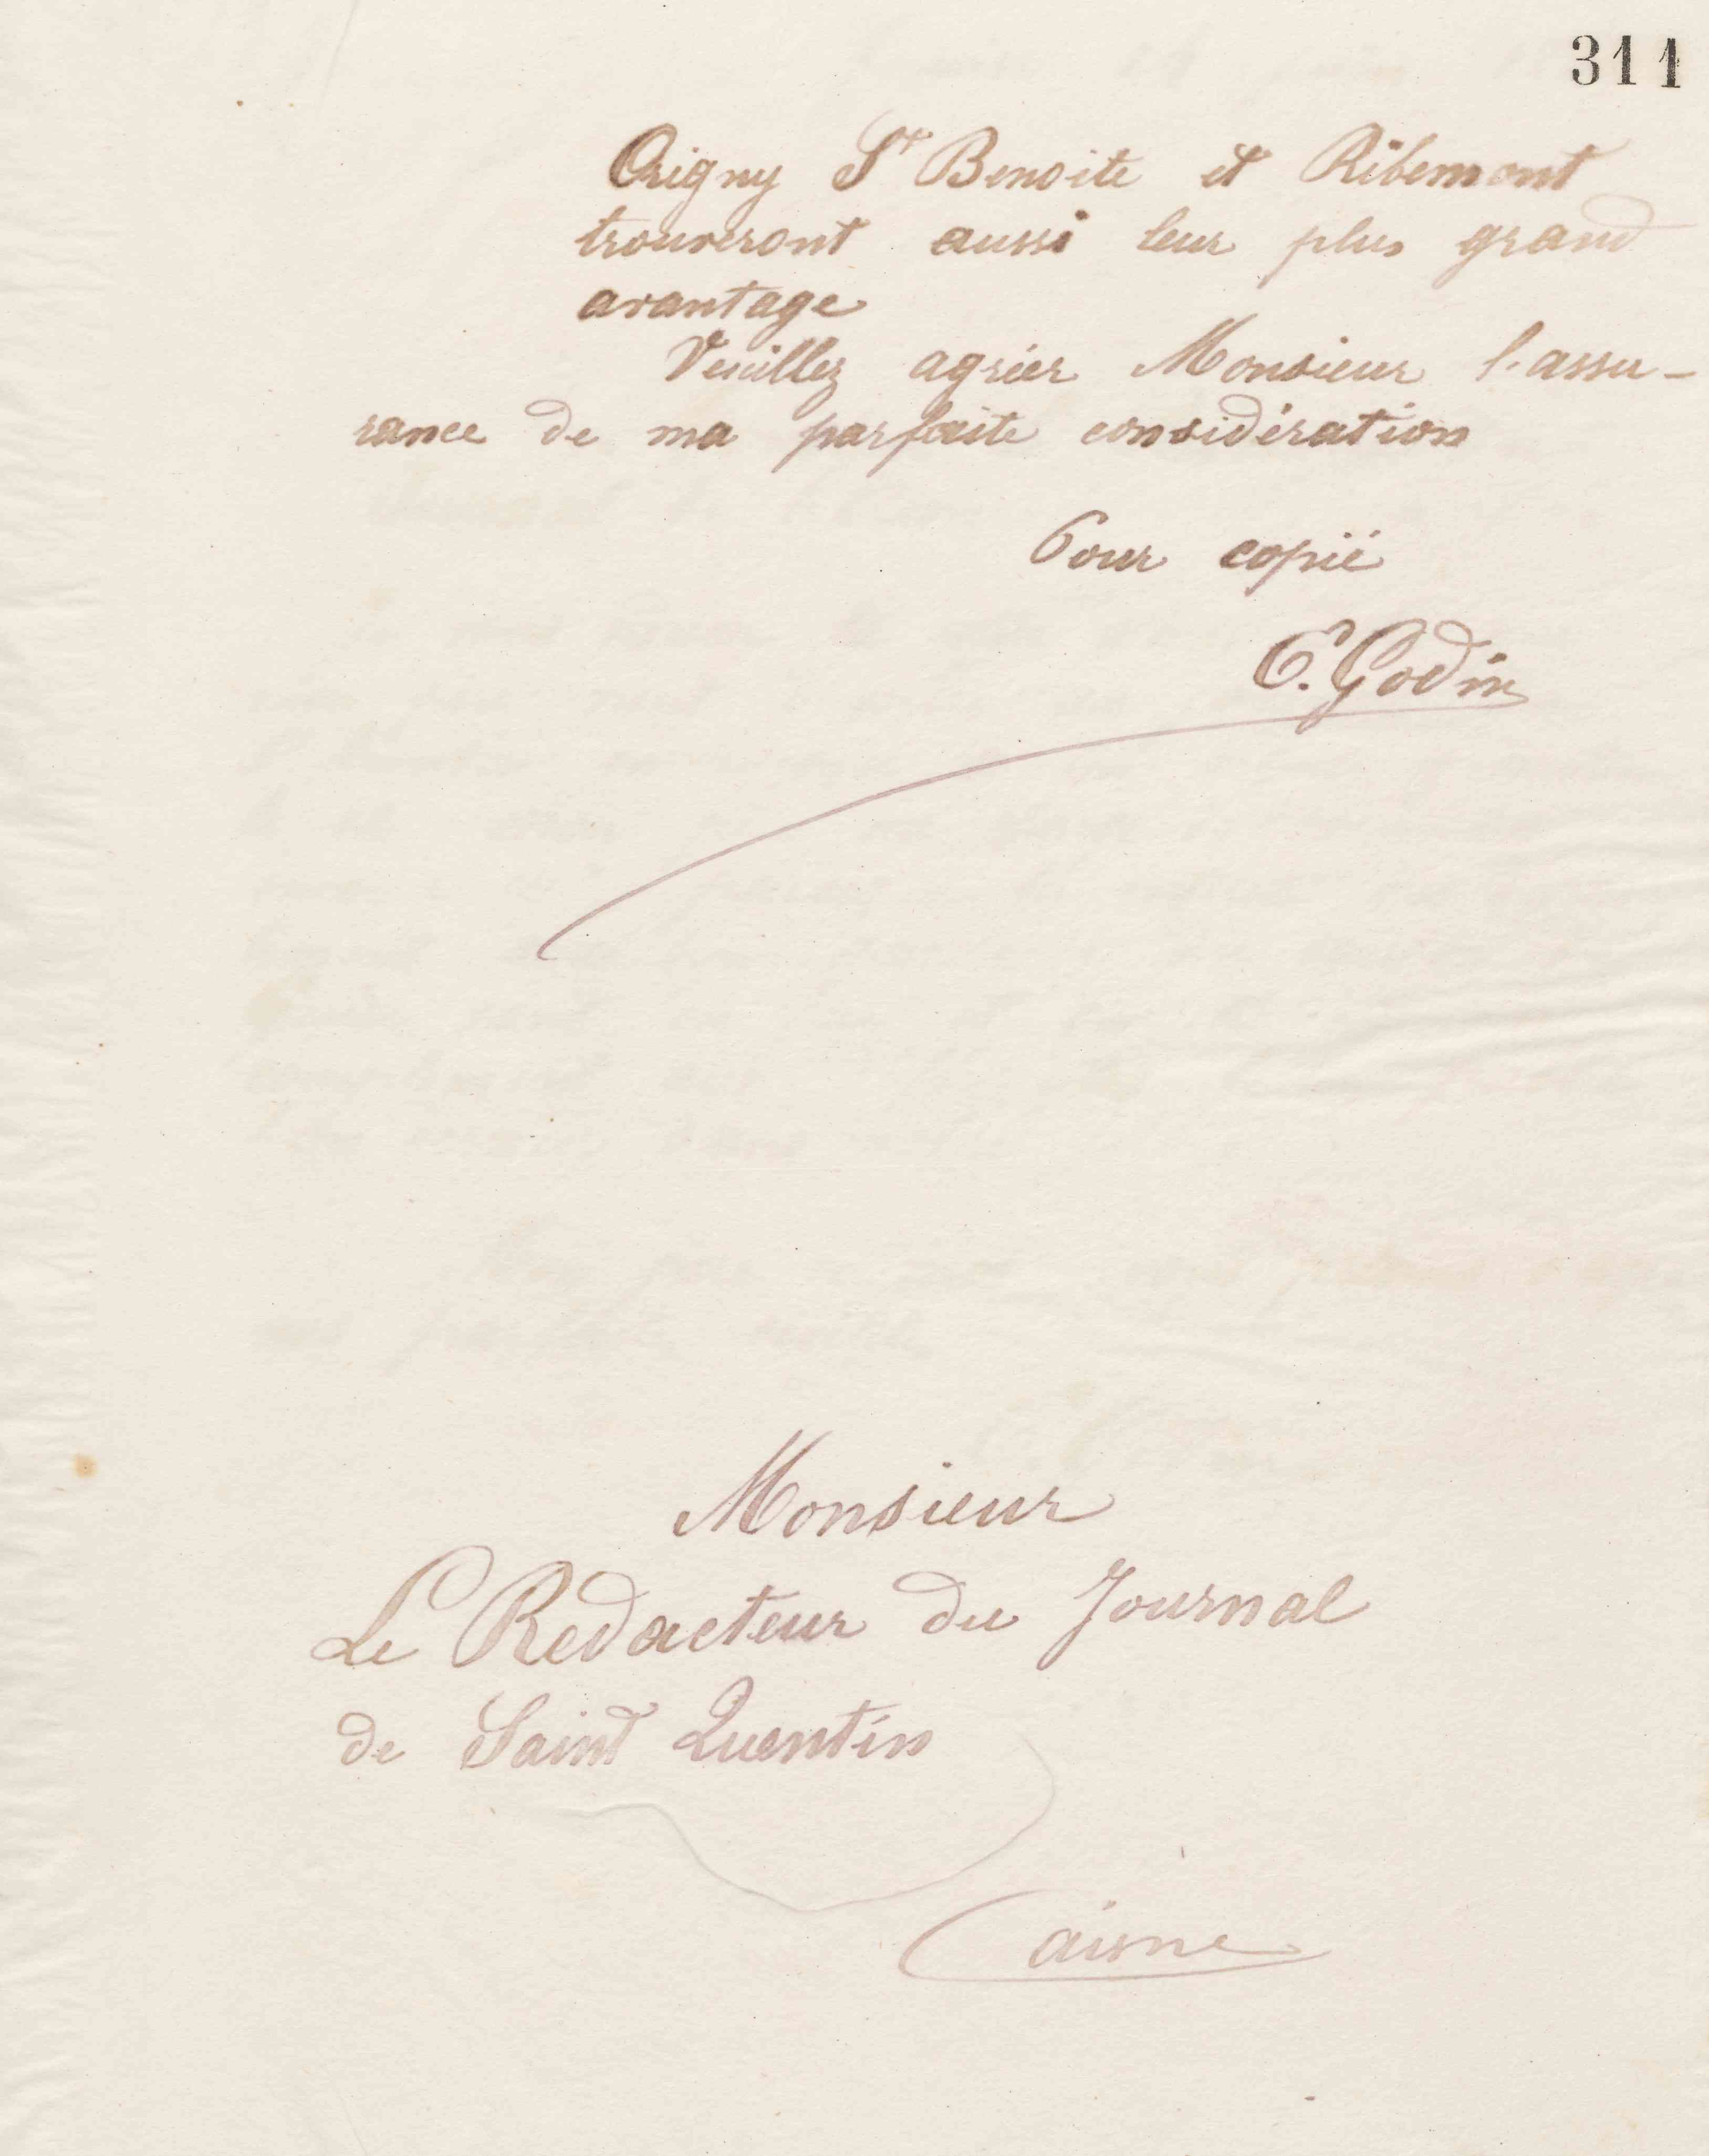 311
Origny St Benoite et Ribemont
trouveront aussi leur plus grand
avantage
Veuillez agréer Monsieur l'assu-
rance de ma parfaite considération
Pour copie
E. Godin
Monsieur
Le Redacteur du Journal
de Saint Quentin
aisne